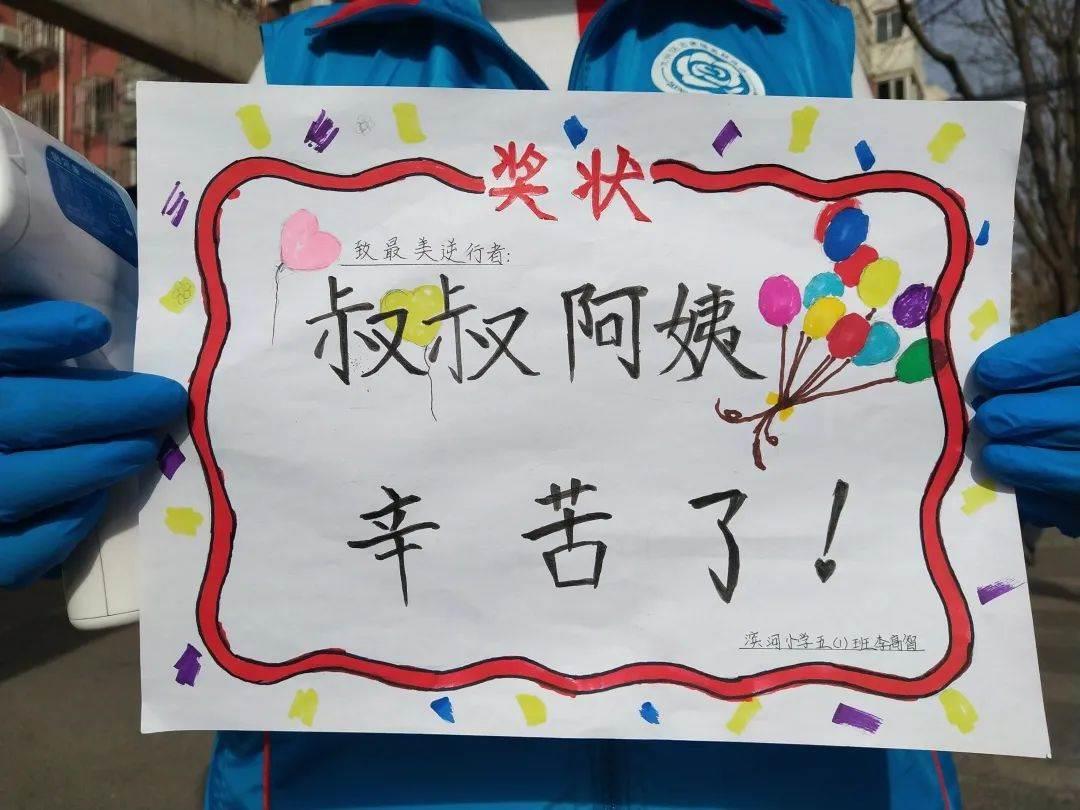 奖状
致最美逆行者:
叔叔阿姨
辛苦了!
滨河小学五(1)班李高智